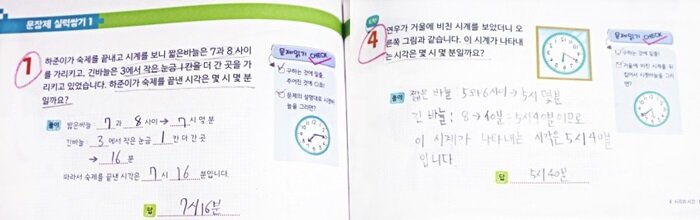 문장제 실력쌓기 1
1
하준이가 숙제를 끝내고 시계를 보니 짧은바늘은 7과 8 사이
를 가리키고, 긴바늘은 3에서 작은 눈금 1칸을 더 간 곳을 가
리키고 있었습니다. 하준이가 숙제를 끝낸 시각은 몇 시 몇 분
일까요?
문제읽기 CHECK
구하는 것에 밑줄,
주어진 것에 ○표!
문제의 설명대로 시곗바
늘을 그리면?
풀이 짧은바늘 : 7 과 8 사이 → 7 시 몇 분
긴바늘 : 3 에서 작은 눈금 1 칸 더 간 곳
→ 16 분
따라서 숙제를 끝낸 시각은 7 시 16 분입니다.
답 7시 16분
4
연우가 거울에 비친 시계를 보았더니 오
른쪽 그림과 같습니다. 이 시계가 나타내
는 시각은 몇 시 몇 분일까요?
문제읽기 CHECK
구하는 것에 밑줄!
거울에 비친 시계를 뒤
집어서 시곗바늘을 그리
면?
풀이 짧은 바늘 : 5와 6 사이 → 5시 몇분
긴 바늘 : 8 → 40분 = 5시 40분이므로
이 시계가 나타내는 시각은 5시 40분
입니다
답 5시 40분
4. 시각과 시간